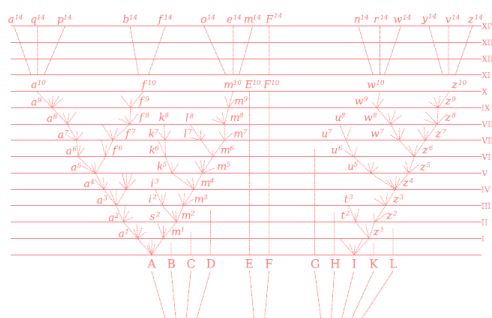 a14 q14 p14 b14 f14 o14 e14 m14 F14 n14 r14 w14 y14 v14 z14 XIV
XIII
XII
XI
a10 f10 m10 E10 F10 w10 z10 X
a9 f9 m9 w9 z9 IX
a8 f8 k8 l8 m8 u8 w8 z8 VIII
a7 f7 k7 l7 m7 u7 w7 z7 VII
a6 f6 k6 m6 u6 z6 VI
a5 k5 m5 u5 z5 V
a4 i3 m4 z4 IV
a3 i2 m3 t3 z3 III
a2 s2 m2 t2 z2 II
a1 m1 z1 I
A B C D E F G H I K L